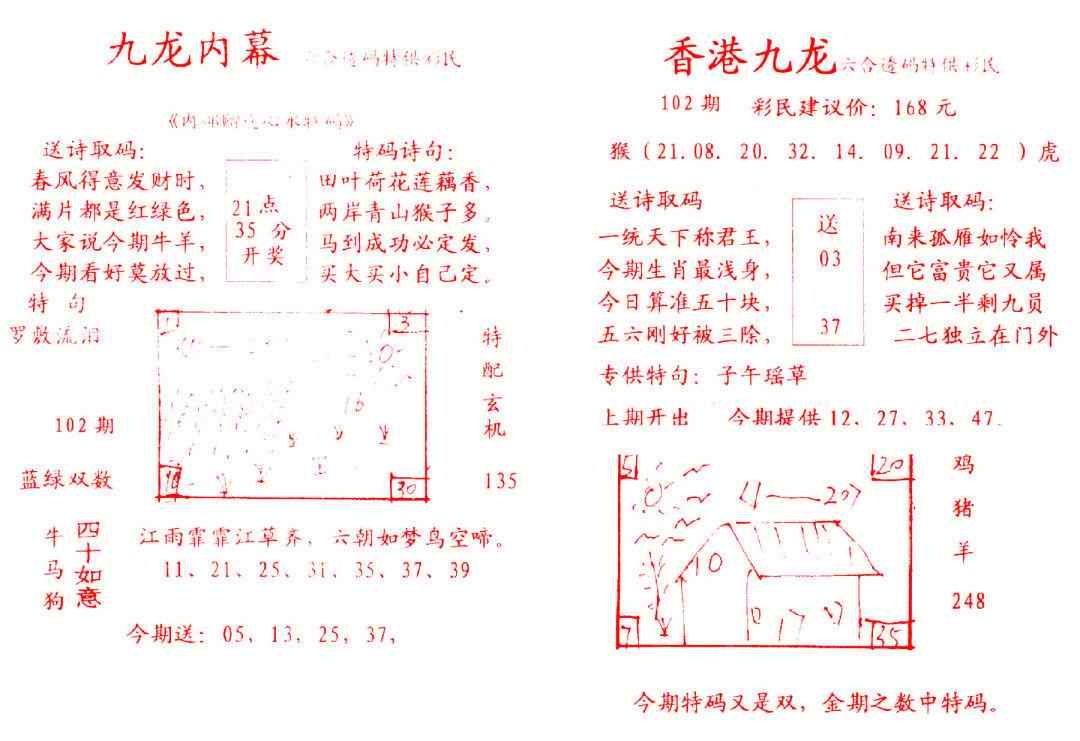 九龙内幕 六合透码特供彩民
送诗取码:
春风得意发财时,
满片都是红绿色,
大家说今期牛羊,
今期看好莫放过,
特 句
罗敷流泪
21点
35 分
开奖
特码诗句:
田叶荷花莲藕香,
两岸青山猴子多。
马到成功必定发,
买大买小自己定。
1
3
10
30
特
配
玄
机
135
102期
蓝绿双数
牛
马
狗
四十如意
江雨霏霏江草齐, 六朝如梦鸟空啼。
11、21、25、31、35、37、39
今期送: 05、13、25、37,
香港九龙 六合透码特供彩民
102期 彩民建议价: 168元
猴(21.08. 20. 32. 14. 09. 21. 22 )虎
送诗取码
一统天下称君王,
今期生肖最浅身,
今日算准五十块,
五六刚好被三除,
送
03
37
送诗取码:
南来孤雁如怜我
但它富贵它又属
买掉一半剩九员
二七独立在门外
专供特句: 子午瑶草
上期开出 今期提供12、27、33、47.
5
20
10
7
35
鸡
猪
羊
248
今期特码又是双, 金期之数中特码。